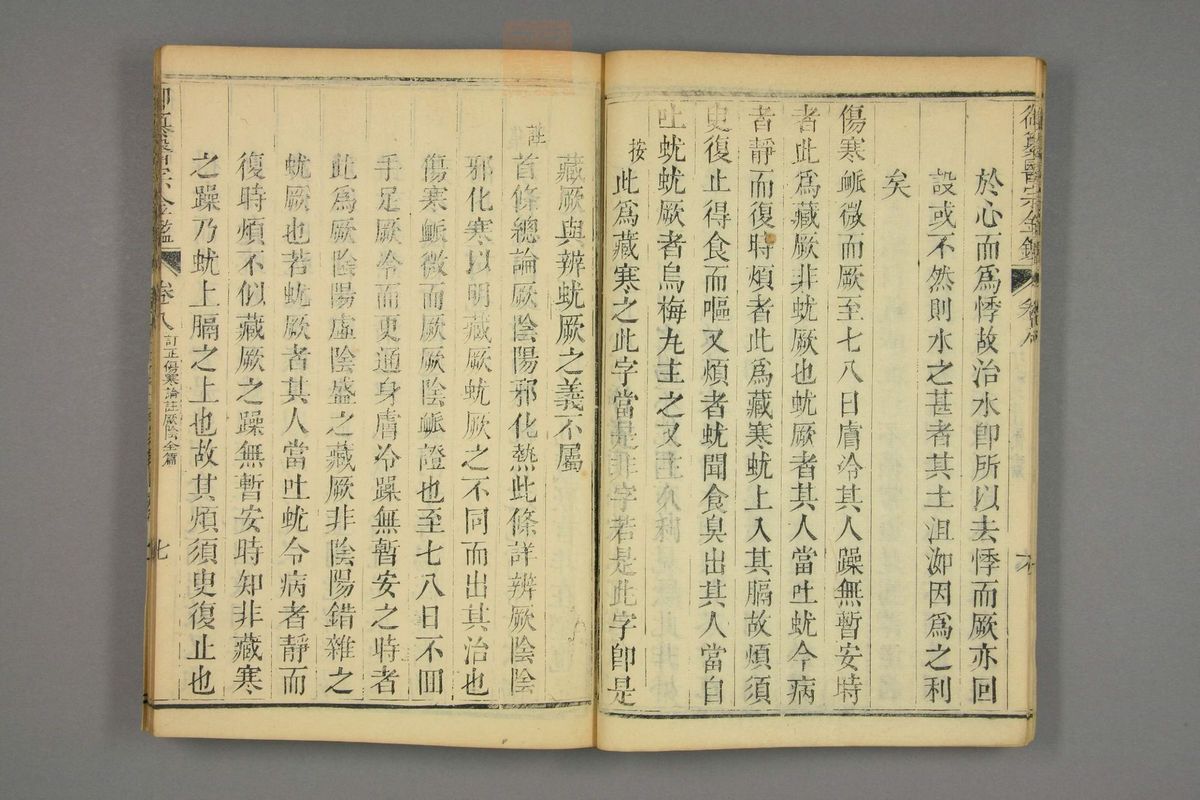 御纂醫宗金鑑
於心而為悸故治水卽所以去悸而厥亦回
設或不然則水之甚者其主沮洳因為之利
矣
傷寒脈微而厥至七八日膚冷其人躁無暫安時
者此為藏厥非蚘厥也蚘厥者其人當吐蚘今病
者靜而復時煩者此為藏寒蚘上入其膈故煩須
臾復止得食而嘔又煩者蚘聞食臭出其人當自
吐蚘蚘厥者烏梅丸主之又主久利
按
此為藏寒之此字當是非字若是此字卽是
藏厥與辨蚘厥之義不屬
註
首條總論厥陰陽邪化熱此條詳辨厥陰陰
邪化寒以明藏厥蚘厥之不同而出其治也
傷寒脈微而厥厥陰脈證也至七八日不回
手足厥冷而更通身膚冷躁無暫安之時者
此為厥陰陽虛陰盛之藏厥非陰陽錯雜之
蚘厥也若蚘厥者其人當吐蚘今病者靜而
復時煩不似藏厥之躁無暫安時知非藏寒
之躁乃蚘上膈之上也故其煩須臾復止也
卷八
訂正傷寒論註厥陰全篇
七